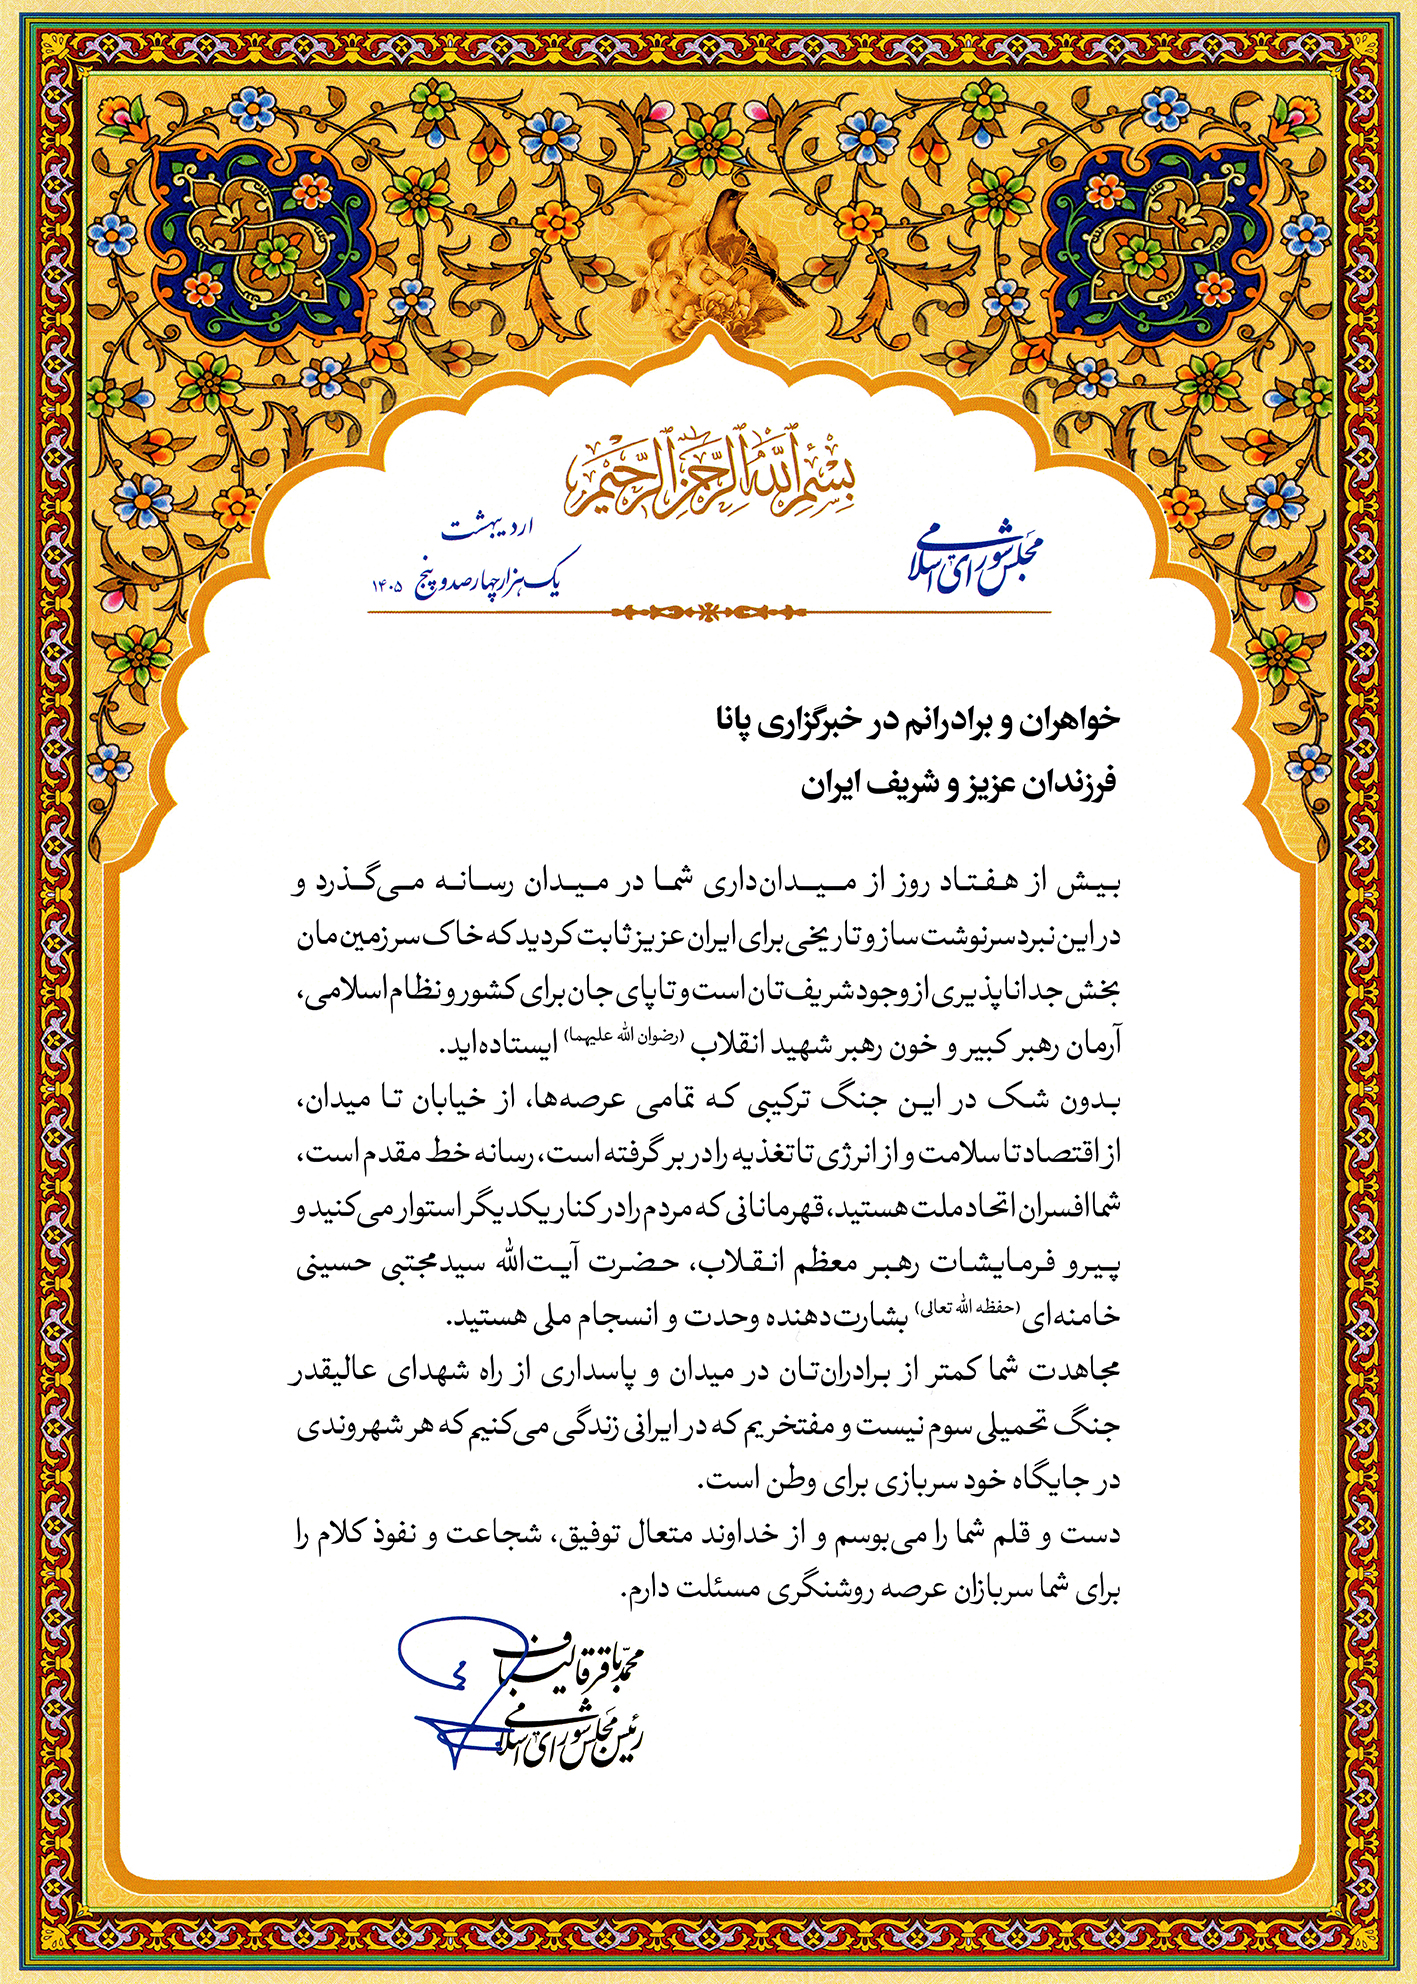 بسم الله الرحمن الرحیم
مجلس شورای اسلامی
اردیبهشت
یک هزار چهارصد و پنج ۱۴۰۵
خواهران و برادرانم در خبرگزاری پانا
فرزندان عزیز و شریف ایران
بیش از هفتاد روز از میدان‌داری شما در میدان رسانه می‌گذرد و
در این نبرد سرنوشت ساز و تاریخی برای ایران عزیز ثابت کردید که خاک سرزمین مان
بخش جداناپذیری از وجود شریف‌تان است و تا پای جان برای کشور و نظام اسلامی،
آرمان رهبر کبیر و خون رهبر شهید انقلاب (رضوان الله علیهما) ایستاده‌اید.
بدون شک در این جنگ ترکیبی که تمامی عرصه‌ها، از خیابان تا میدان،
از اقتصاد تا سلامت و از انرژی تا تغذیه را در بر گرفته است، رسانه خط مقدم است،
شما افسران اتحاد ملت هستید، قهرمانانی که مردم را در کنار یکدیگر استوار می‌کنید و
پیرو فرمایشات رهبر معظم انقلاب، حضرت آیت‌الله سیدمجتبی حسینی
خامنه‌ای (حفظه الله تعالی) بشارت‌دهنده وحدت و انسجام ملی هستید.
مجاهدت شما کمتر از برادران‌تان در میدان و پاسداری از راه شهدای عالیقدر
جنگ تحمیلی سوم نیست و مفتخریم که در ایرانی زندگی می‌کنیم که هر شهروندی
در جایگاه خود سربازی برای وطن است.
دست و قلم شما را می‌بوسم و از خداوند متعال توفیق، شجاعت و نفوذ کلام را
برای شما سربازان عرصه روشنگری مسئلت دارم.
محمدباقر قالیباف
رئیس مجلس شورای اسلامی